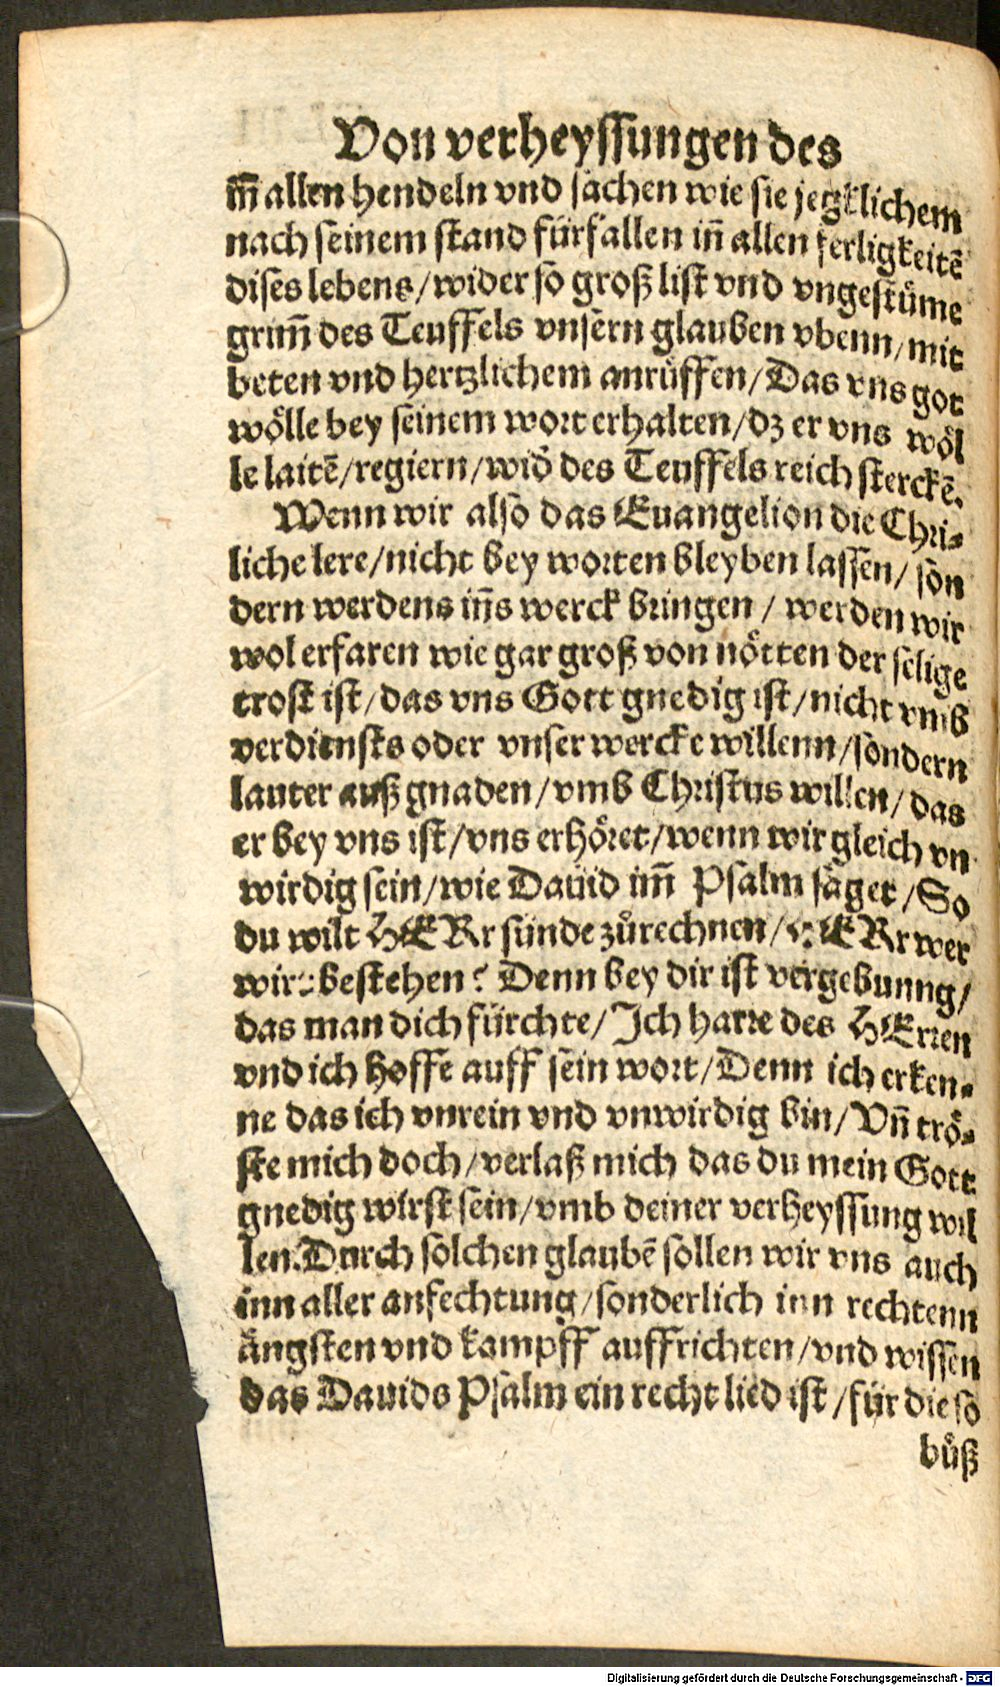 Von verheyssungen des
im̄ allen hendeln vnd sachen wie sie jegklichem
nach seinem stand fürfallen in̄ allen ferligkeitē
dises lebens/wider so groß list vnd vngestüme
grim̄ des Teuffels vnsern glauben vbenn/mit
beten vnd hertzlichem anrüffen/Das vns got
wölle bey seinem wort erhalten/dz er vns wöl
le laitē/regiern/wid̕ des Teuffels reich sterckē.
Wenn wir also das Euangelion die Chri⸗
liche lere/nicht bey worten bleyben lassen/son
dern werdens in̄s werck bringen/werden wir
wol erfaren wie gar groß von nötten der selige
trost ist/das vns Gott gnedig ist/nicht vmb
verdiensts oder vnser wercke willenn/sondern
lauter auß gnaden/vmb Christus willen/das
er bey vns ist/vns erhöret/wenn wir gleich vn
wirdig sein/wie Dauid im̄ Psalm saget/So
du wilt HERr sünde zůrechnen/HERr wer
wirt bestehen? Denn bey dir ist vergebunng/
das man dich fürchte/Ich harre des HErren
vnd ich hoffe auff sein wort/Denn ich erken⸗
ne das ich vnrein vnd vnwirdig bin/Vn̄ trö⸗
ste mich doch/verlaß mich das du mein Gott
gnedig wirst sein/vmb deiner verheyssung wil
len.Durch solchen glaubē sollen wir vns auch
inn aller anfechtung/sonderlich inn rechtenn
ängsten vnd kampff auffrichten/vnd wissen
das Dauids Psalm ein recht lied ist/für die so
bůß
Digitalisierung gefördert durch die Deutsche Forschungsgemeinschaft - DFG